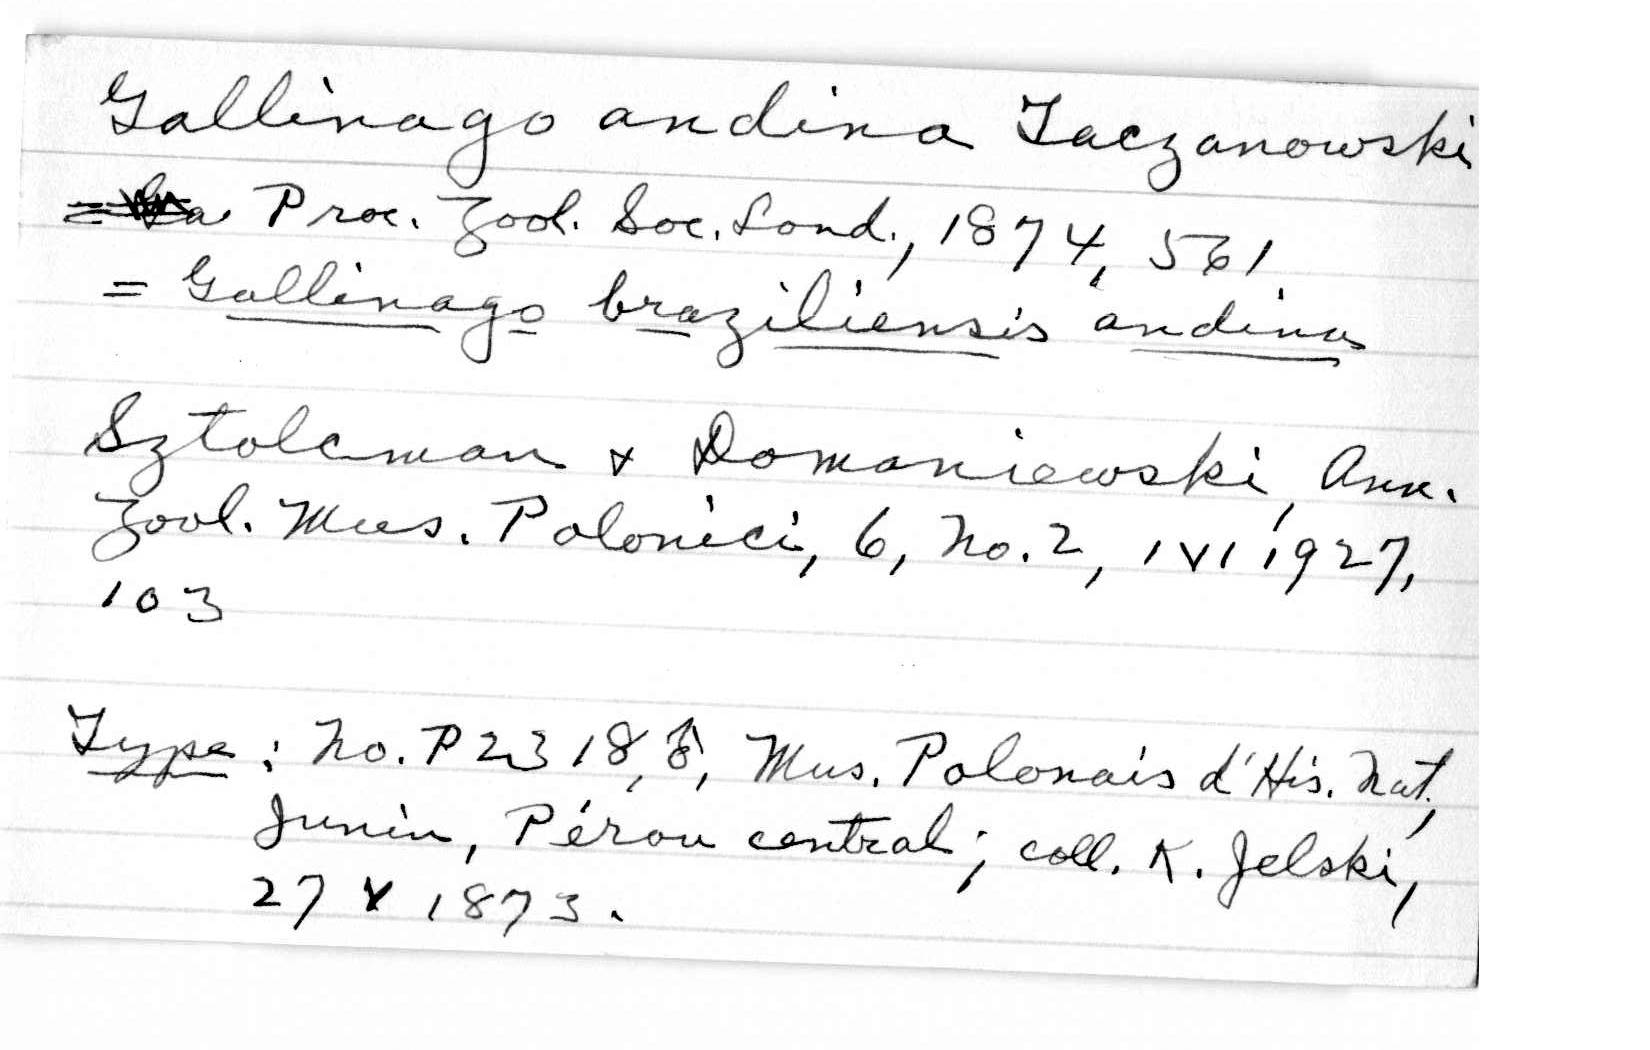 Gallinago andina Taczanowski
Proc. Zool. Soc. Lond., 1874, 561
= Gallinago braziliensis andina
Sztolcman & Domaniewski, Ann.
Zool. Mus. Polonici, 6, No. 2, 1 VI 1927,
103
Type: No. P2318, ♂, Mus. Polonais d'His. Nat.,
Junin, Pérou central; coll. K. Jelski,
27 V 1873.